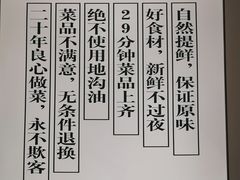 自然提鲜，保证原味
好食材，新鲜不过夜
29分钟菜品上齐
绝不使用地沟油
菜品不满意，无条件退换
二十年良心做菜，永不欺客